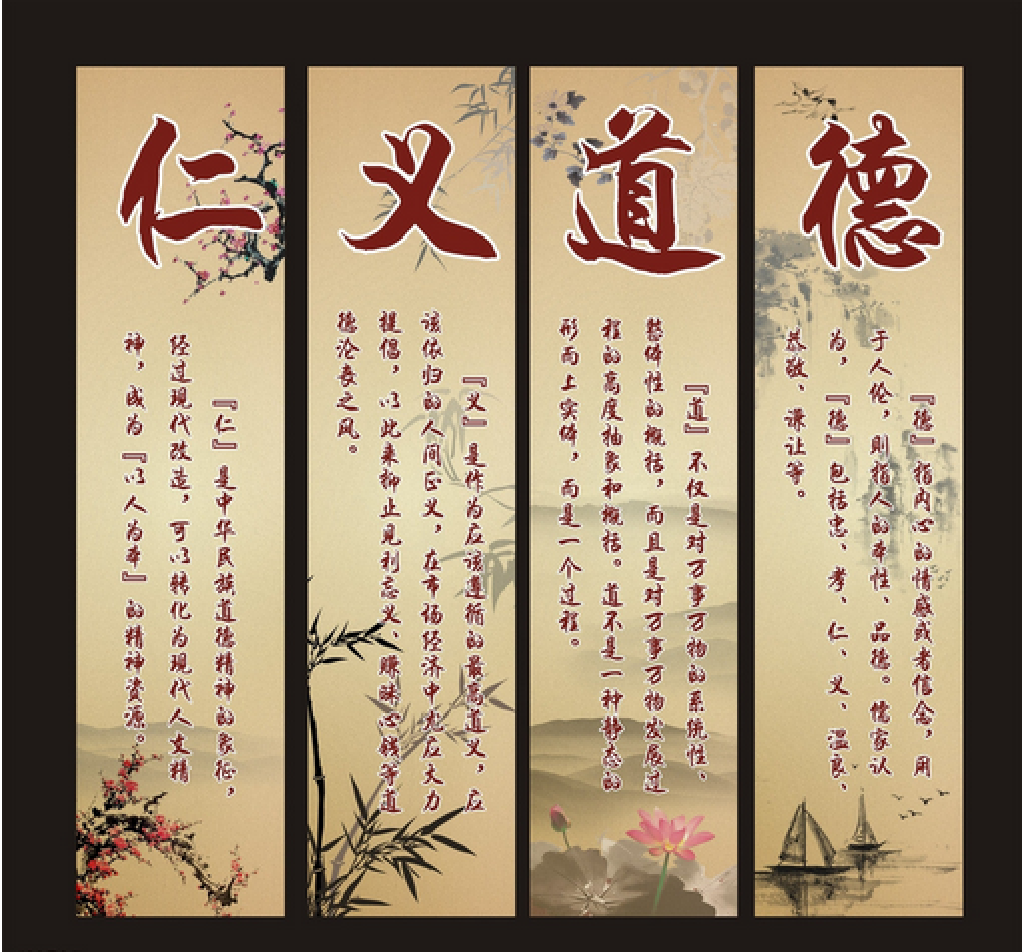 仁
『仁』是中华民族道德精神的象征，
经过现代改造，可以转化为现代人文精
神，成为『以人为本』的精神资源。
义
『义』是作为应该遵循的最高道义，应
该依归的人间正义，在市场经济中尤应大力
提倡，以此来抑止见利忘义、赚昧心钱等道
德沦丧之风。
道
『道』不仅是对万事万物的系统性、
整体性的概括，而且是对万事万物发展过
程的高度抽象和概括。道不是一种静态的
形而上实体，而是一个过程。
德
『德』指内心的情感或者信念，用
于人伦，则指人的本性、品德。儒家认
为，『德』包括忠、孝、仁、义、温良、
恭敬、谦让等。